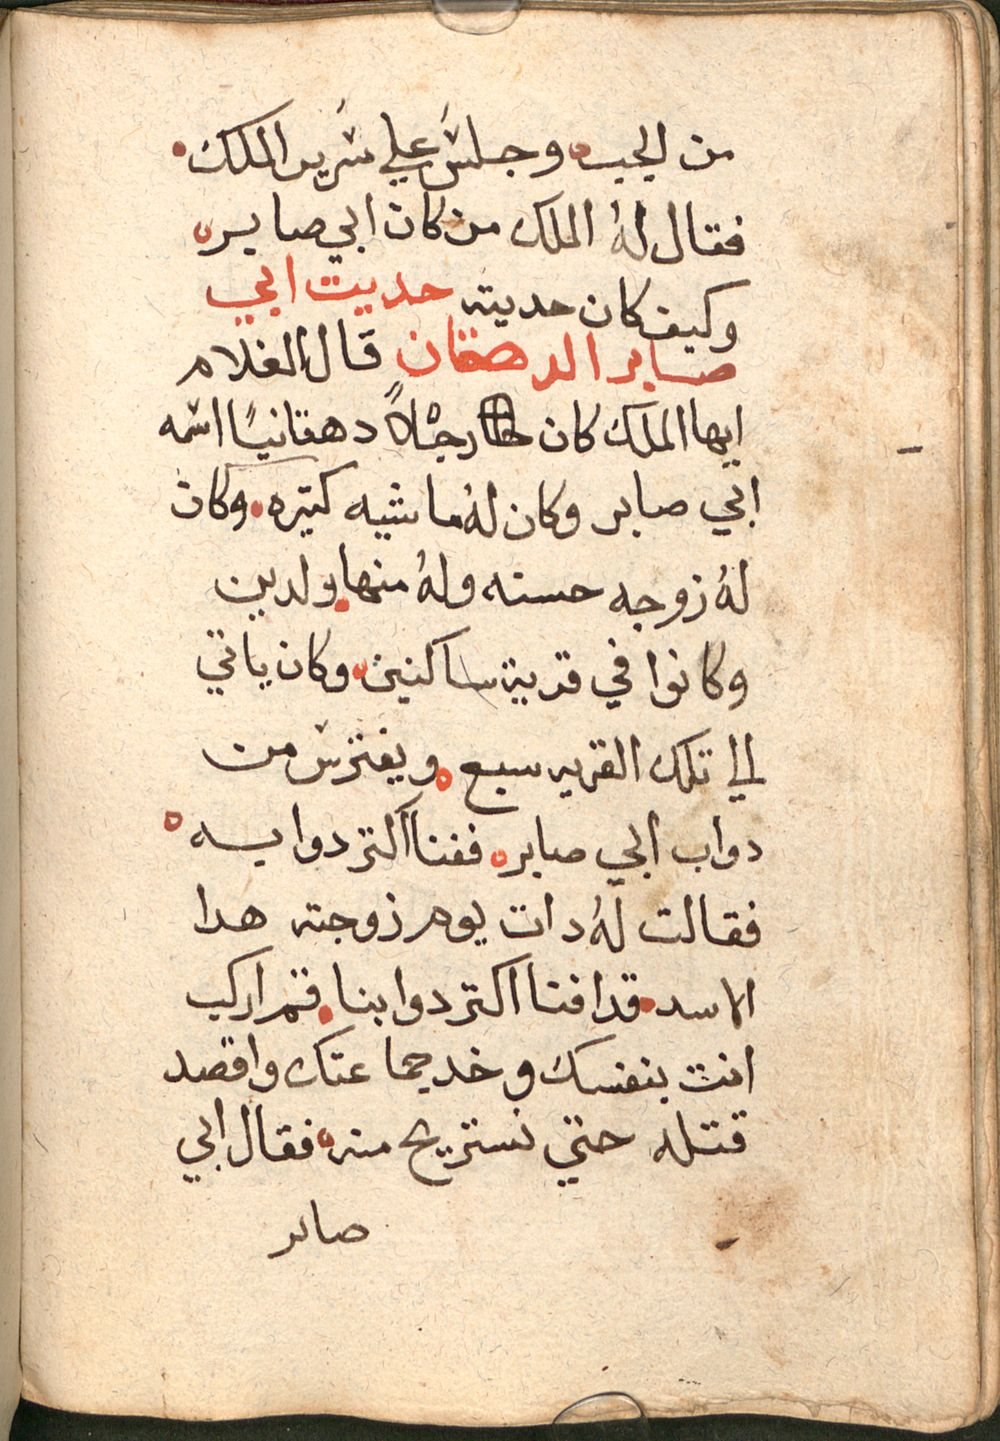 من الجب وجلس علي سرير الملك
فقال لهُ الملك من كان ابي صابر
وكيف كان حديته حديت ابي
صابر الدهقان قال الغلام
ايها الملك كان رجلاً دهقانيًا اسمه
ابي صابر وكان لهُ ماشيه كتيره وكان
لهُ زوجه حسنه ولهُ منها ولدين
وكانوا في قرية ساكنين وكان ياتي
الي تلك القريه سبع ويفترس من
دواب ابي صابر ففنا اكتر دوابه
فقالت لهُ دات يوم زوجته هدا
الاسد قد افنا اكتر دوابنا قم اركب
انت بنفسك وخد جماعتك واقصد
قتله حتي نستريح منه فقال ابي
صابر